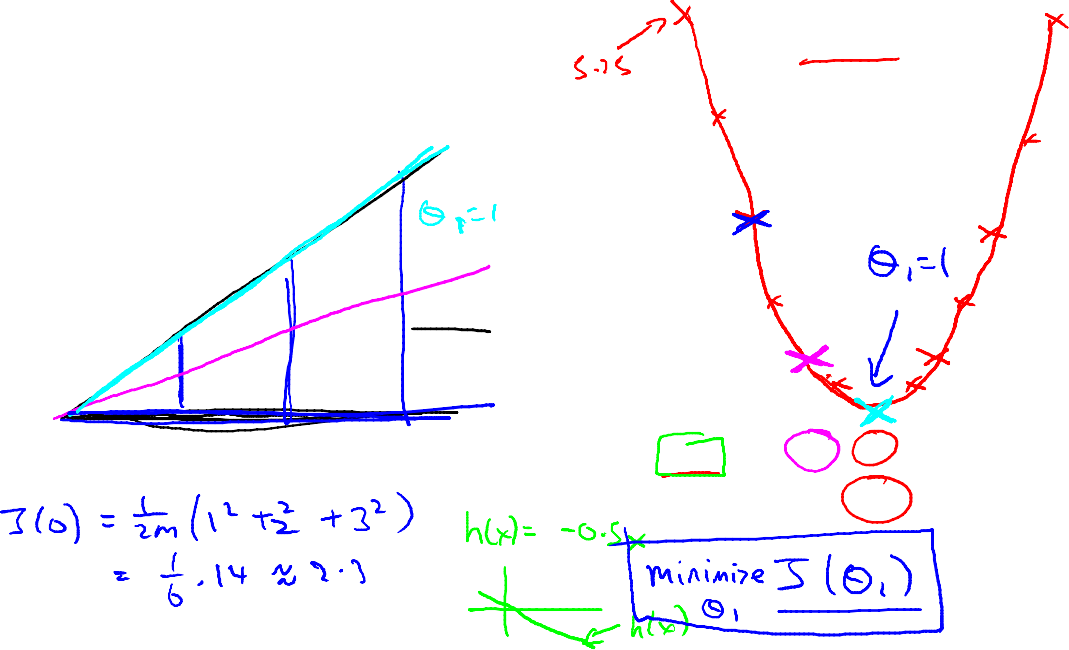 5.25
θ₁=1
θ₁=1
J(0) = 1/2m (1² + 2² + 3²)
= 1/6 · 14 ≈ 2.3
h(x) = -0.5x
minimize J(θ₁)
θ₁
h(x)